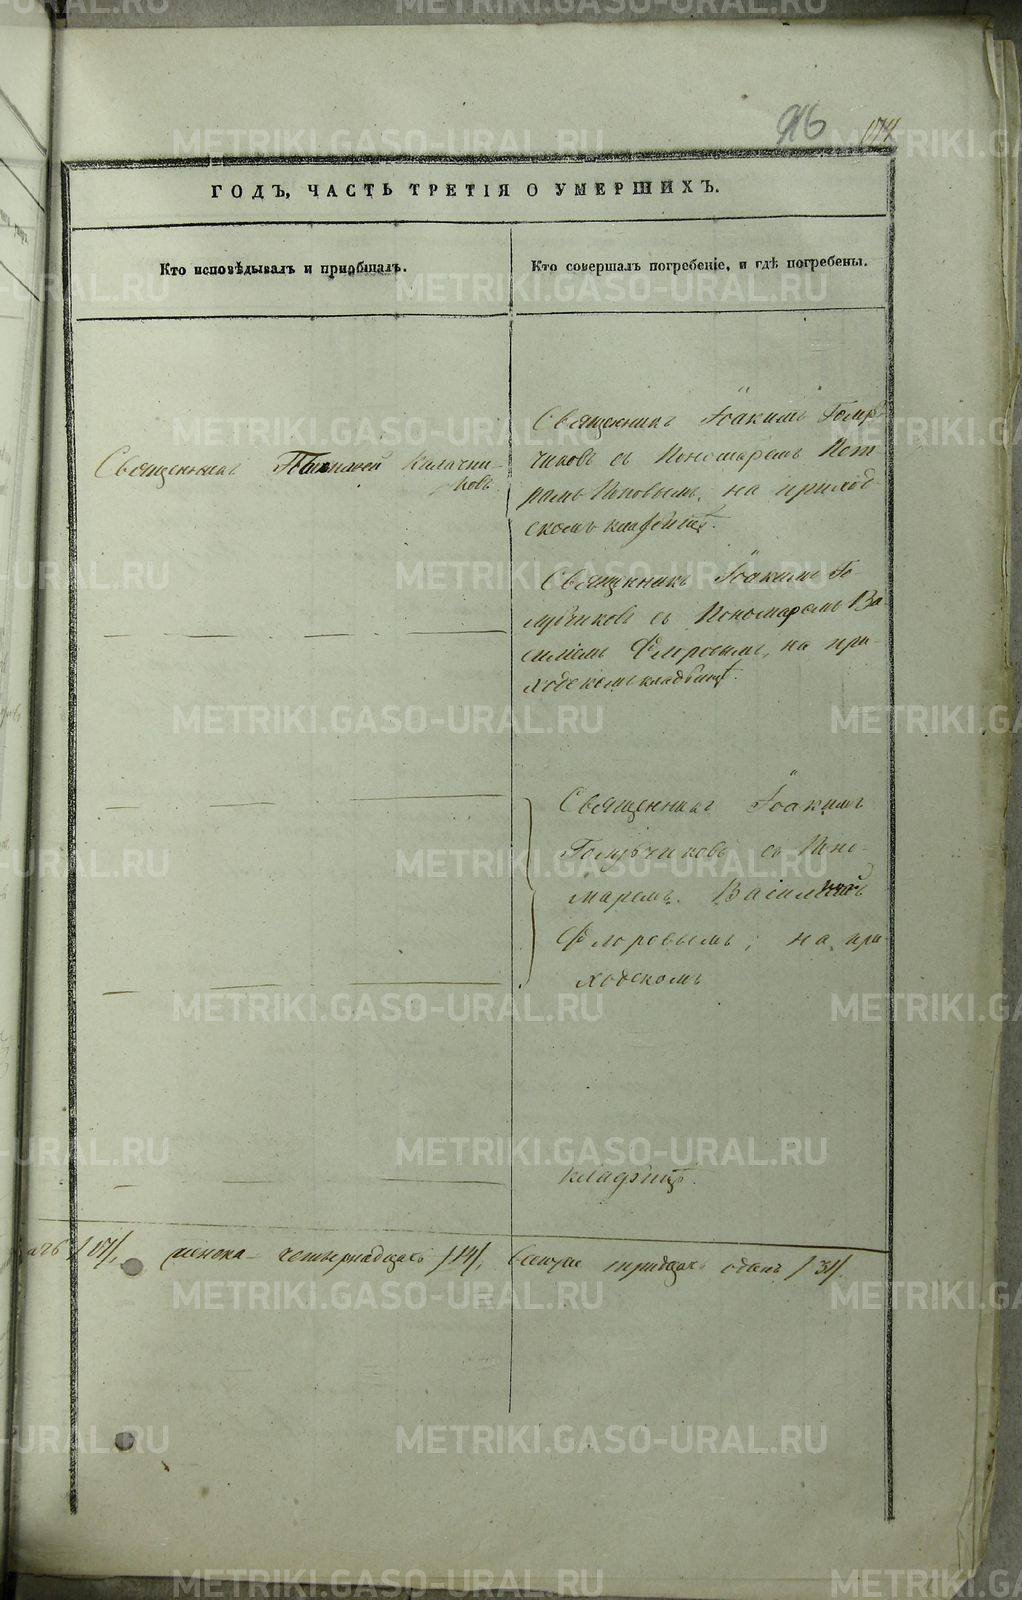 916
174
ГОДЪ, ЧАСТЬ ТРЕТІЯ О УМЕРШИХЪ.
Кто исповѣдывалъ и приобщалъ.
Кто совершалъ погребеніе, и гдѣ погребены.
Священникъ Калачни-
ковъ
Священникъ Іоакимъ Голуб
чиковъ съ Пономаремъ Пет
ромъ Поповымъ, на приход
скомъ кладбищѣ.
Священникъ Іоакимъ Го-
лубчиковъ съ Пономаремъ Ва
силіемъ Флоровымъ, на при-
ходскомъ кладбищѣ.
Священникъ Іоакимъ
Голубчиковъ съ Поно-
маремъ Василіемъ
Флоровымъ, на при-
ходскомъ
кладбищѣ.
/17/, женска четырнадцать /14/, всего тридцать одинъ /31/.
METRIKI.GASO-URAL.RU